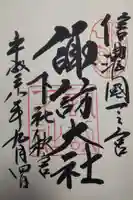 信濃國一之宮
諏訪大社
下社秋宮
平成 八年九月四日